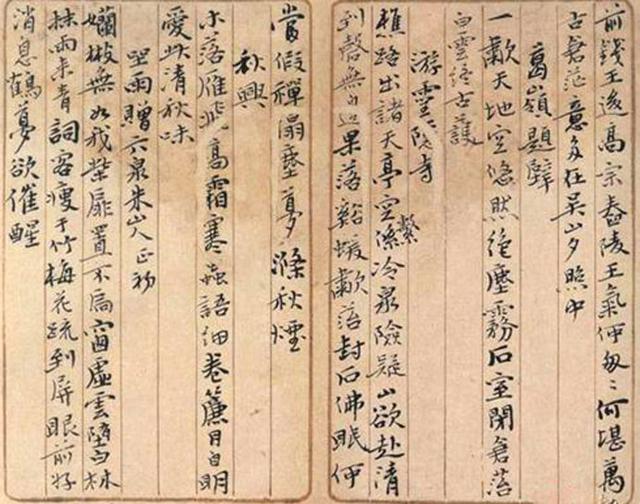 前錢王後高宗舂陵王氣何匆〻何堪萬
古蒼茫意多在吳山夕照中
葛嶺題壁
一歗天地空悠然絶塵霧石室閉蒼苔
白雲終古護
游靈隐寺
樵路出諸天亭空係冷泉險疑山欲赴清
繫
到磬無邊果落谿蝯歗苔封石佛眠何
當假禪榻塵夢滌秋煙
秋興
木落雁飛高霜寒蟲語細卷簾月白明
愛此清秋味
望雨贈六泉朱山人正初
嬾散無如我柴扉晝不扃窗虛雲墮白林
抹雨来青詞客瘦于竹梅花疏到屏眼前好
消息鶴夢欲催醒